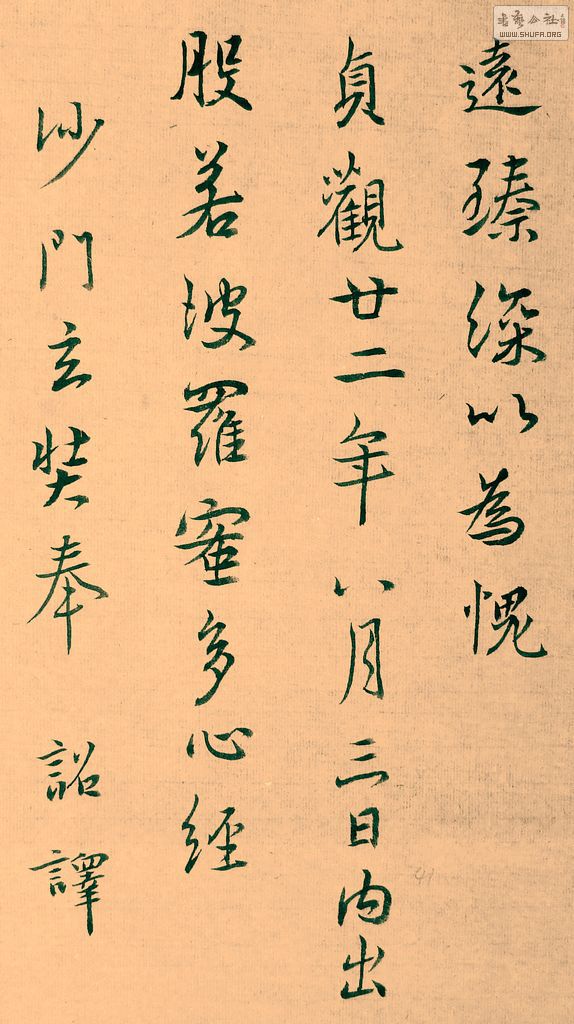 遠臻深以為愧
貞觀廿二年八月三日內出
般若波羅蜜多心經
沙門玄奘奉 詔譯
書藝公社
WWW.SHUFA.ORG